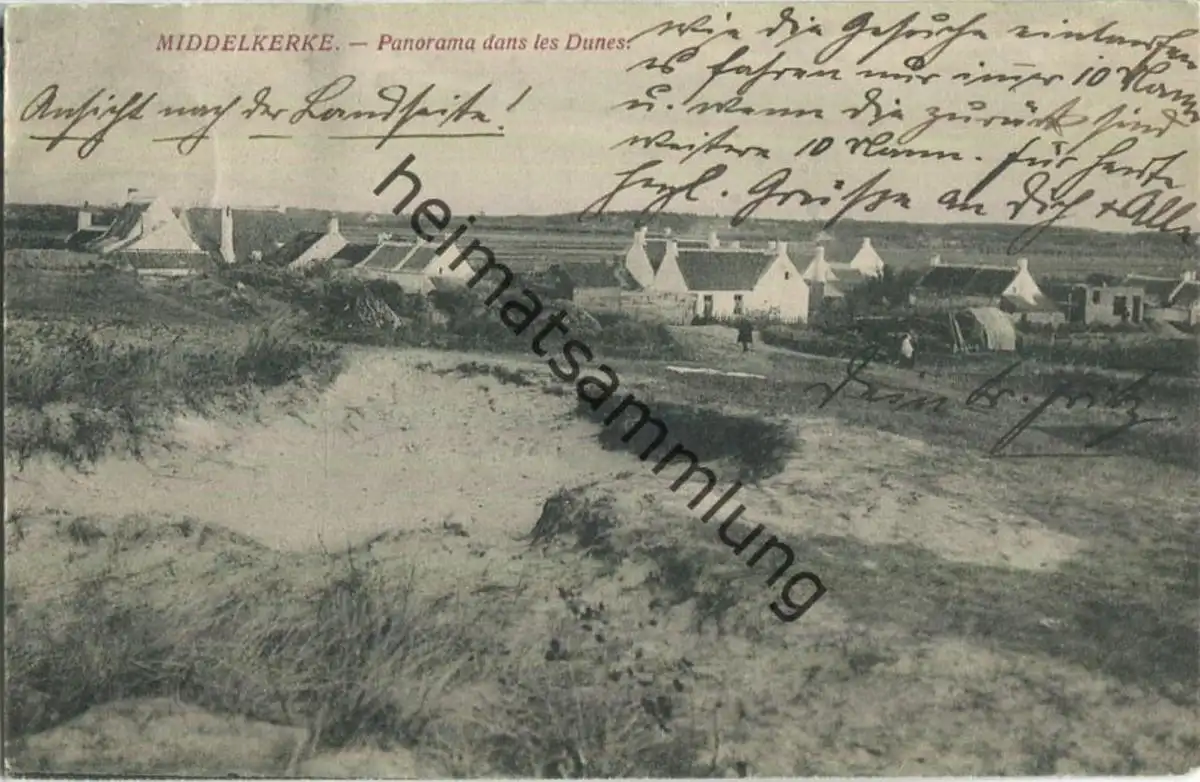 MIDDELKERKE. — Panorama dans les Dunes.
Ansicht nach der Landseite!
wie die Gesuche einlaufen
es fahren nur immer 10 Mann
u. wenn die zurück sind
weitere 10 Mann. Für heute
herzl. Grüße an Dich & Alle
Dein br. Fritz
heimatsammlung